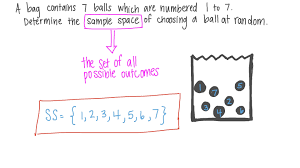 A bag contains 7 balls which are numbered 1 to 7.
Determine the sample space of choosing a ball at random.
the set of all
possible outcomes
SS = { 1, 2, 3, 4, 5, 6, 7 }
1 7 5
2
3 4 6